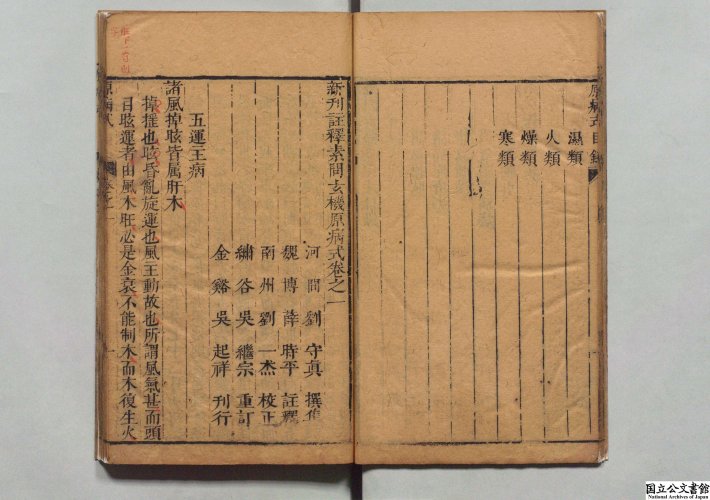 原病式目錄
濕類
火類
燥類
寒類
新刊註釋素問玄機原病式卷之一
河間劉守真撰集
魏博薛時平註釋
南州劉一杰校正
繡谷吳繼宗重訂
金谿吳起祥刊行
五運主病
諸風掉眩皆属肝木
掉搖也眩昏亂旋運也風主動故也所謂風氣甚而頭
目眩運者由風木旺必是金衰不能制木而木復生火
原病式
卷之一
一
国立公文書館
National Archives of Japan